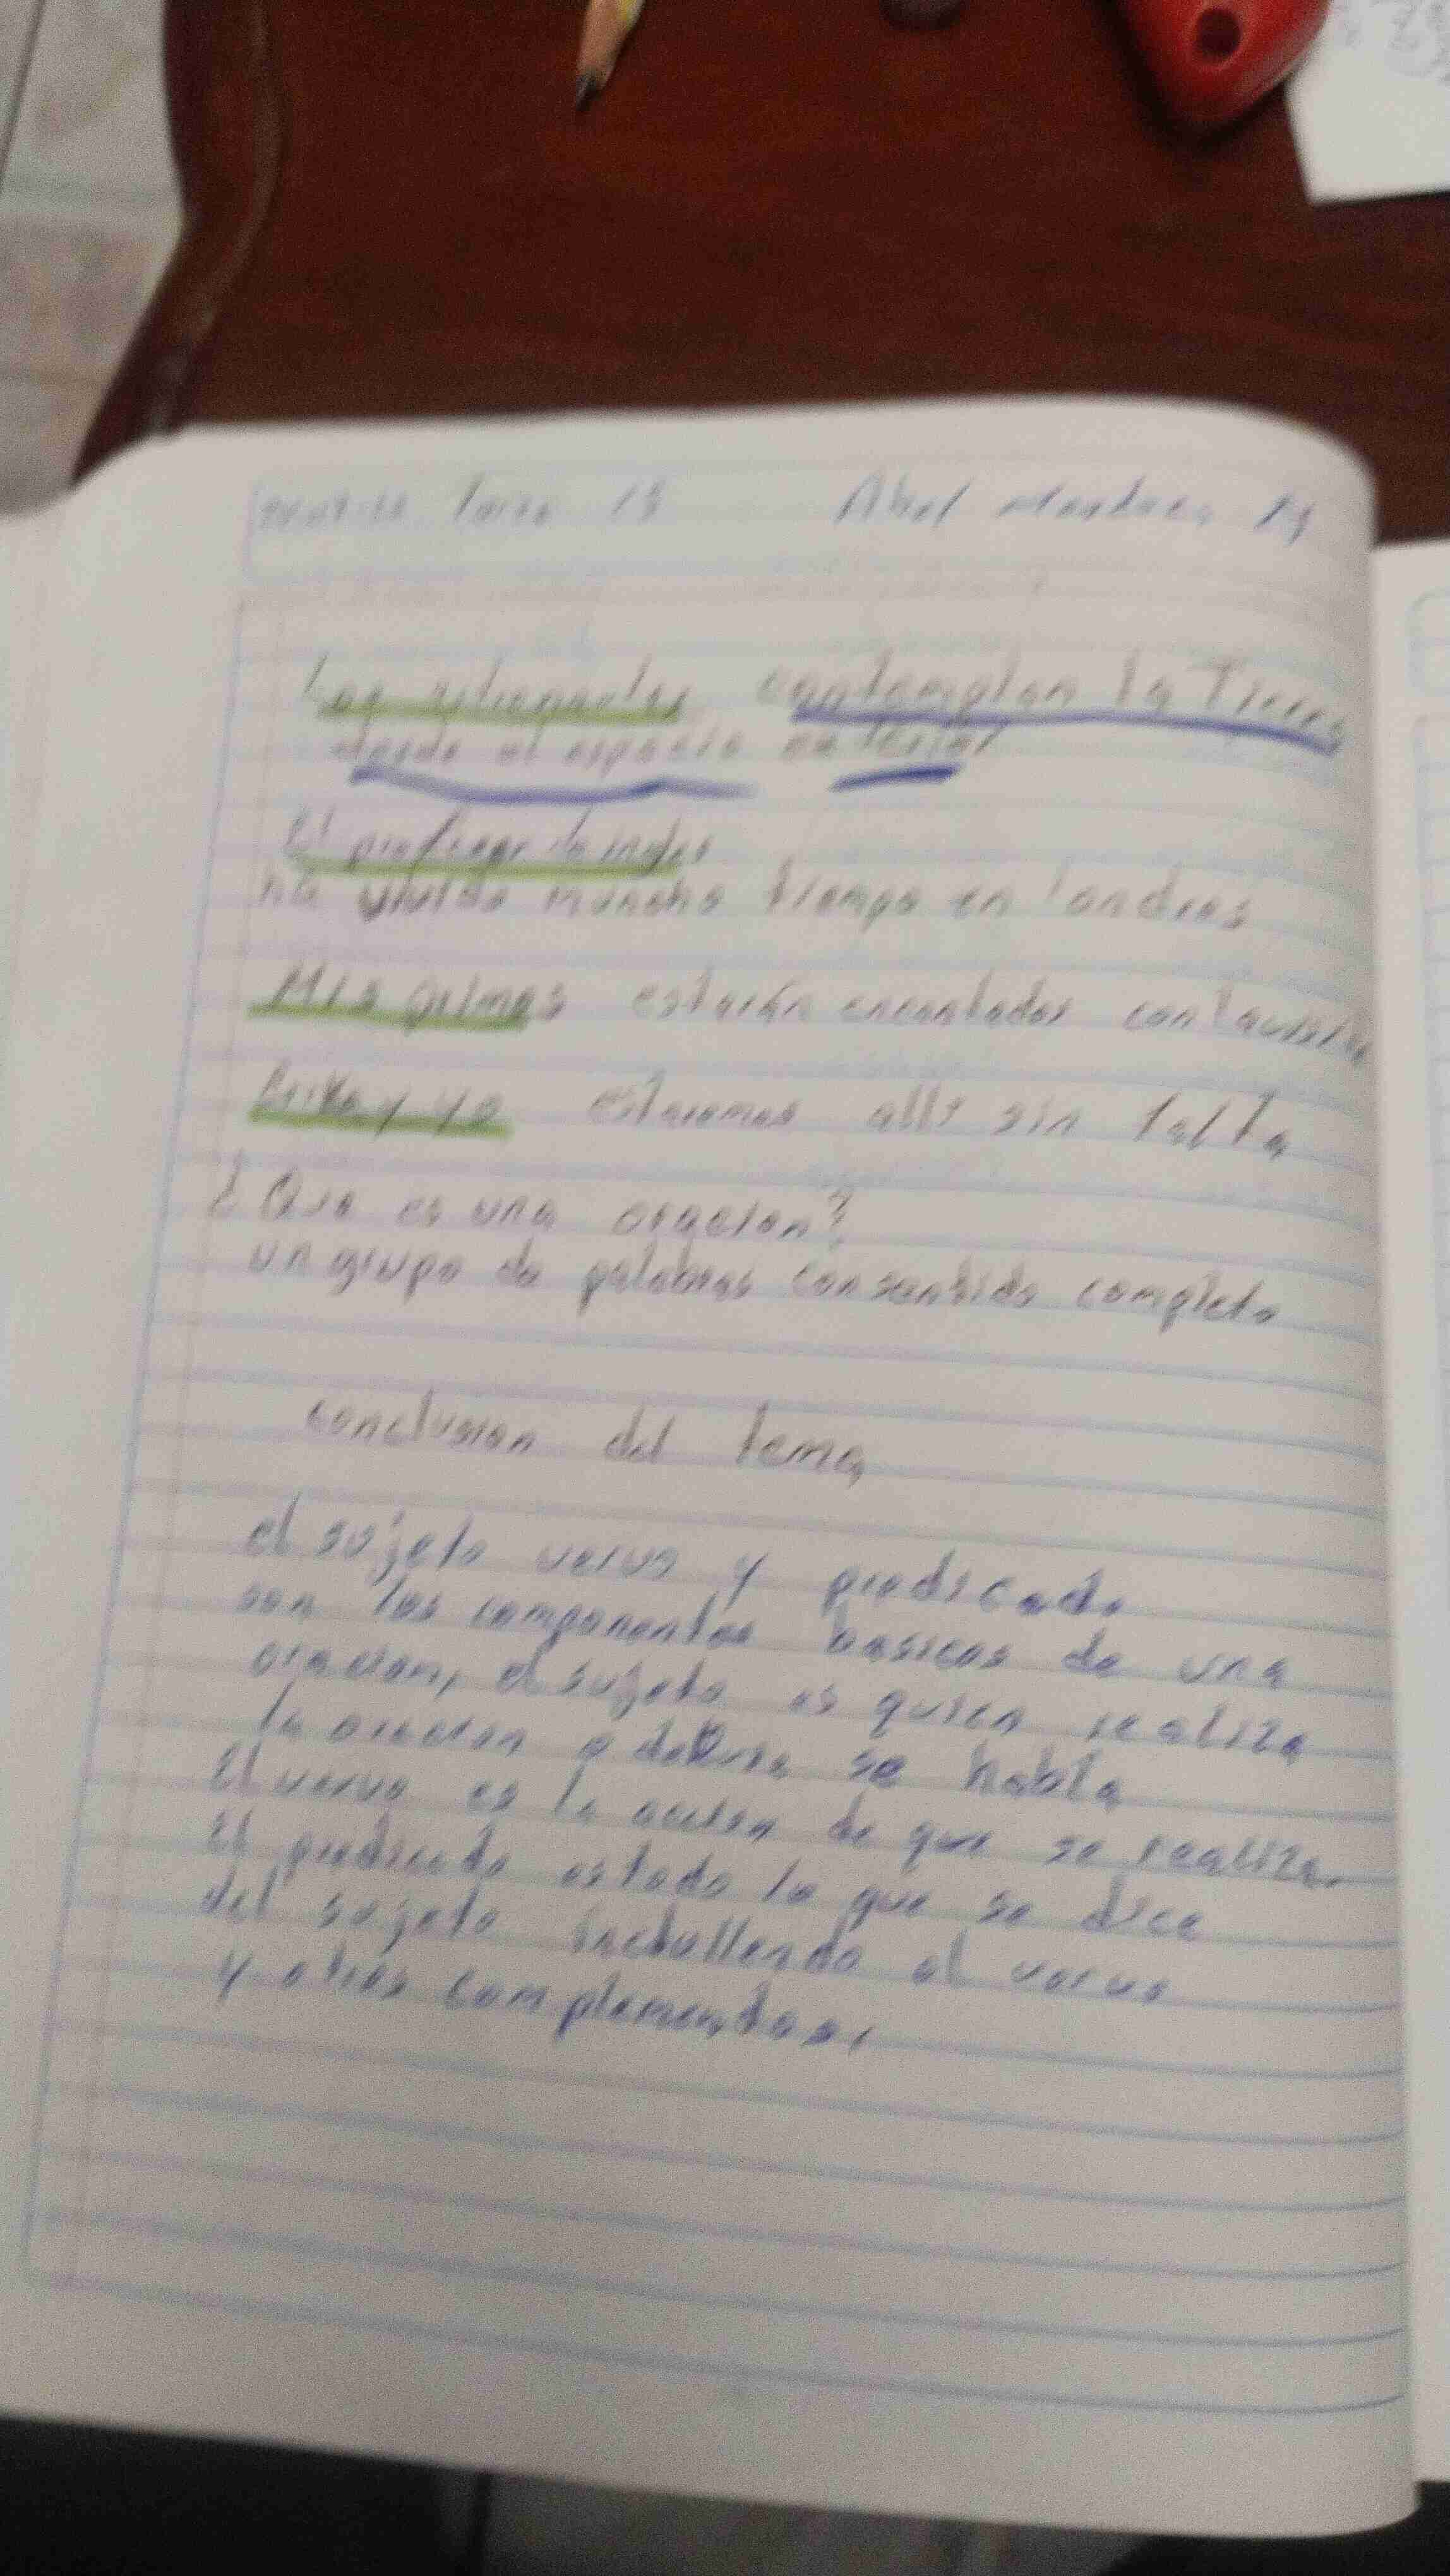 Abel Mendoza
Los astronautas contemplan la Tierra
desde el espacio exterior
El profesor de ingles
ha vivido muncho tiempo en londres
Mis primos estarán encantados con
Erika y yo estaremos alli sin falta
¿Que es una oracion?
un grupo de palabras con sentido completo
conclusion del tema
el sujeto vervo y predicado
son los componentes basicos de una
oracion, el sujeto es quien realiza
la accion o se habla
El vervo es la accion de que se realiza.
El predicado es todo lo que se dice
del sujeto inclullendo al vervo
y otros complementos.